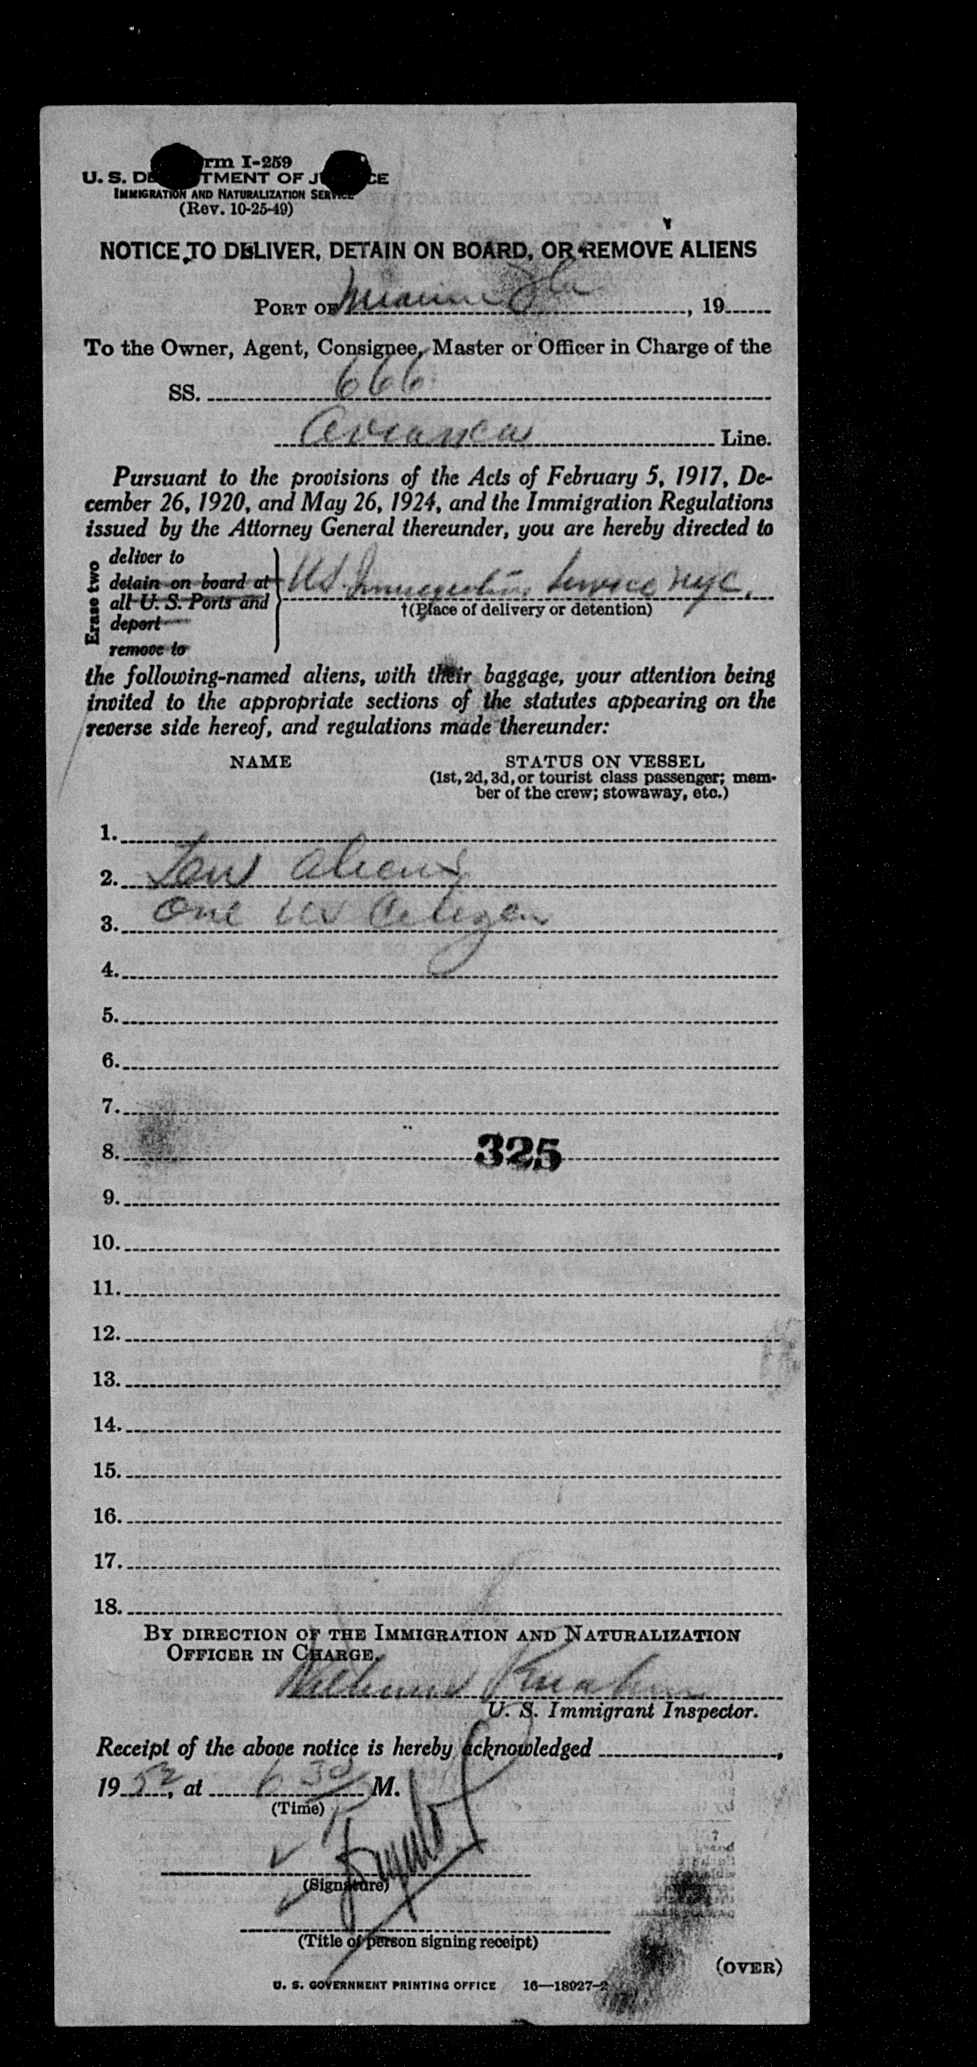 Form I-259
U. S. DEPARTMENT OF JUSTICE
IMMIGRATION AND NATURALIZATION SERVICE
(Rev. 10-25-49)
NOTICE TO DELIVER, DETAIN ON BOARD, OR REMOVE ALIENS
PORT OF Miami Fla, 19
To the Owner, Agent, Consignee, Master or Officer in Charge of the
SS. 666
Avianca Line.
Pursuant to the provisions of the Acts of February 5, 1917, De-
cember 26, 1920, and May 26, 1924, and the Immigration Regulations
issued by the Attorney General thereunder, you are hereby directed to
Erase two
deliver to
detain on board at
all U. S. Ports and
deport
remove to
US Immigration Service NYC.
†(Place of delivery or detention)
the following-named aliens, with their baggage, your attention being
invited to the appropriate sections of the statutes appearing on the
reverse side hereof, and regulations made thereunder:
NAME STATUS ON VESSEL
(1st, 2d, 3d, or tourist class passenger; mem-
ber of the crew; stowaway, etc.)
1.
2. aliens
3. One US Citizen
4.
5.
6.
7.
8. 325
9.
10.
11.
12.
13.
14.
15.
16.
17.
18.
BY DIRECTION OF THE IMMIGRATION AND NATURALIZATION
OFFICER IN CHARGE.
U. S. Immigrant Inspector.
Receipt of the above notice is hereby acknowledged ,
1952, at 6 30 M.
(Time)
(Signature)
(Title of person signing receipt)
(OVER)
U. S. GOVERNMENT PRINTING OFFICE 16—18027-2